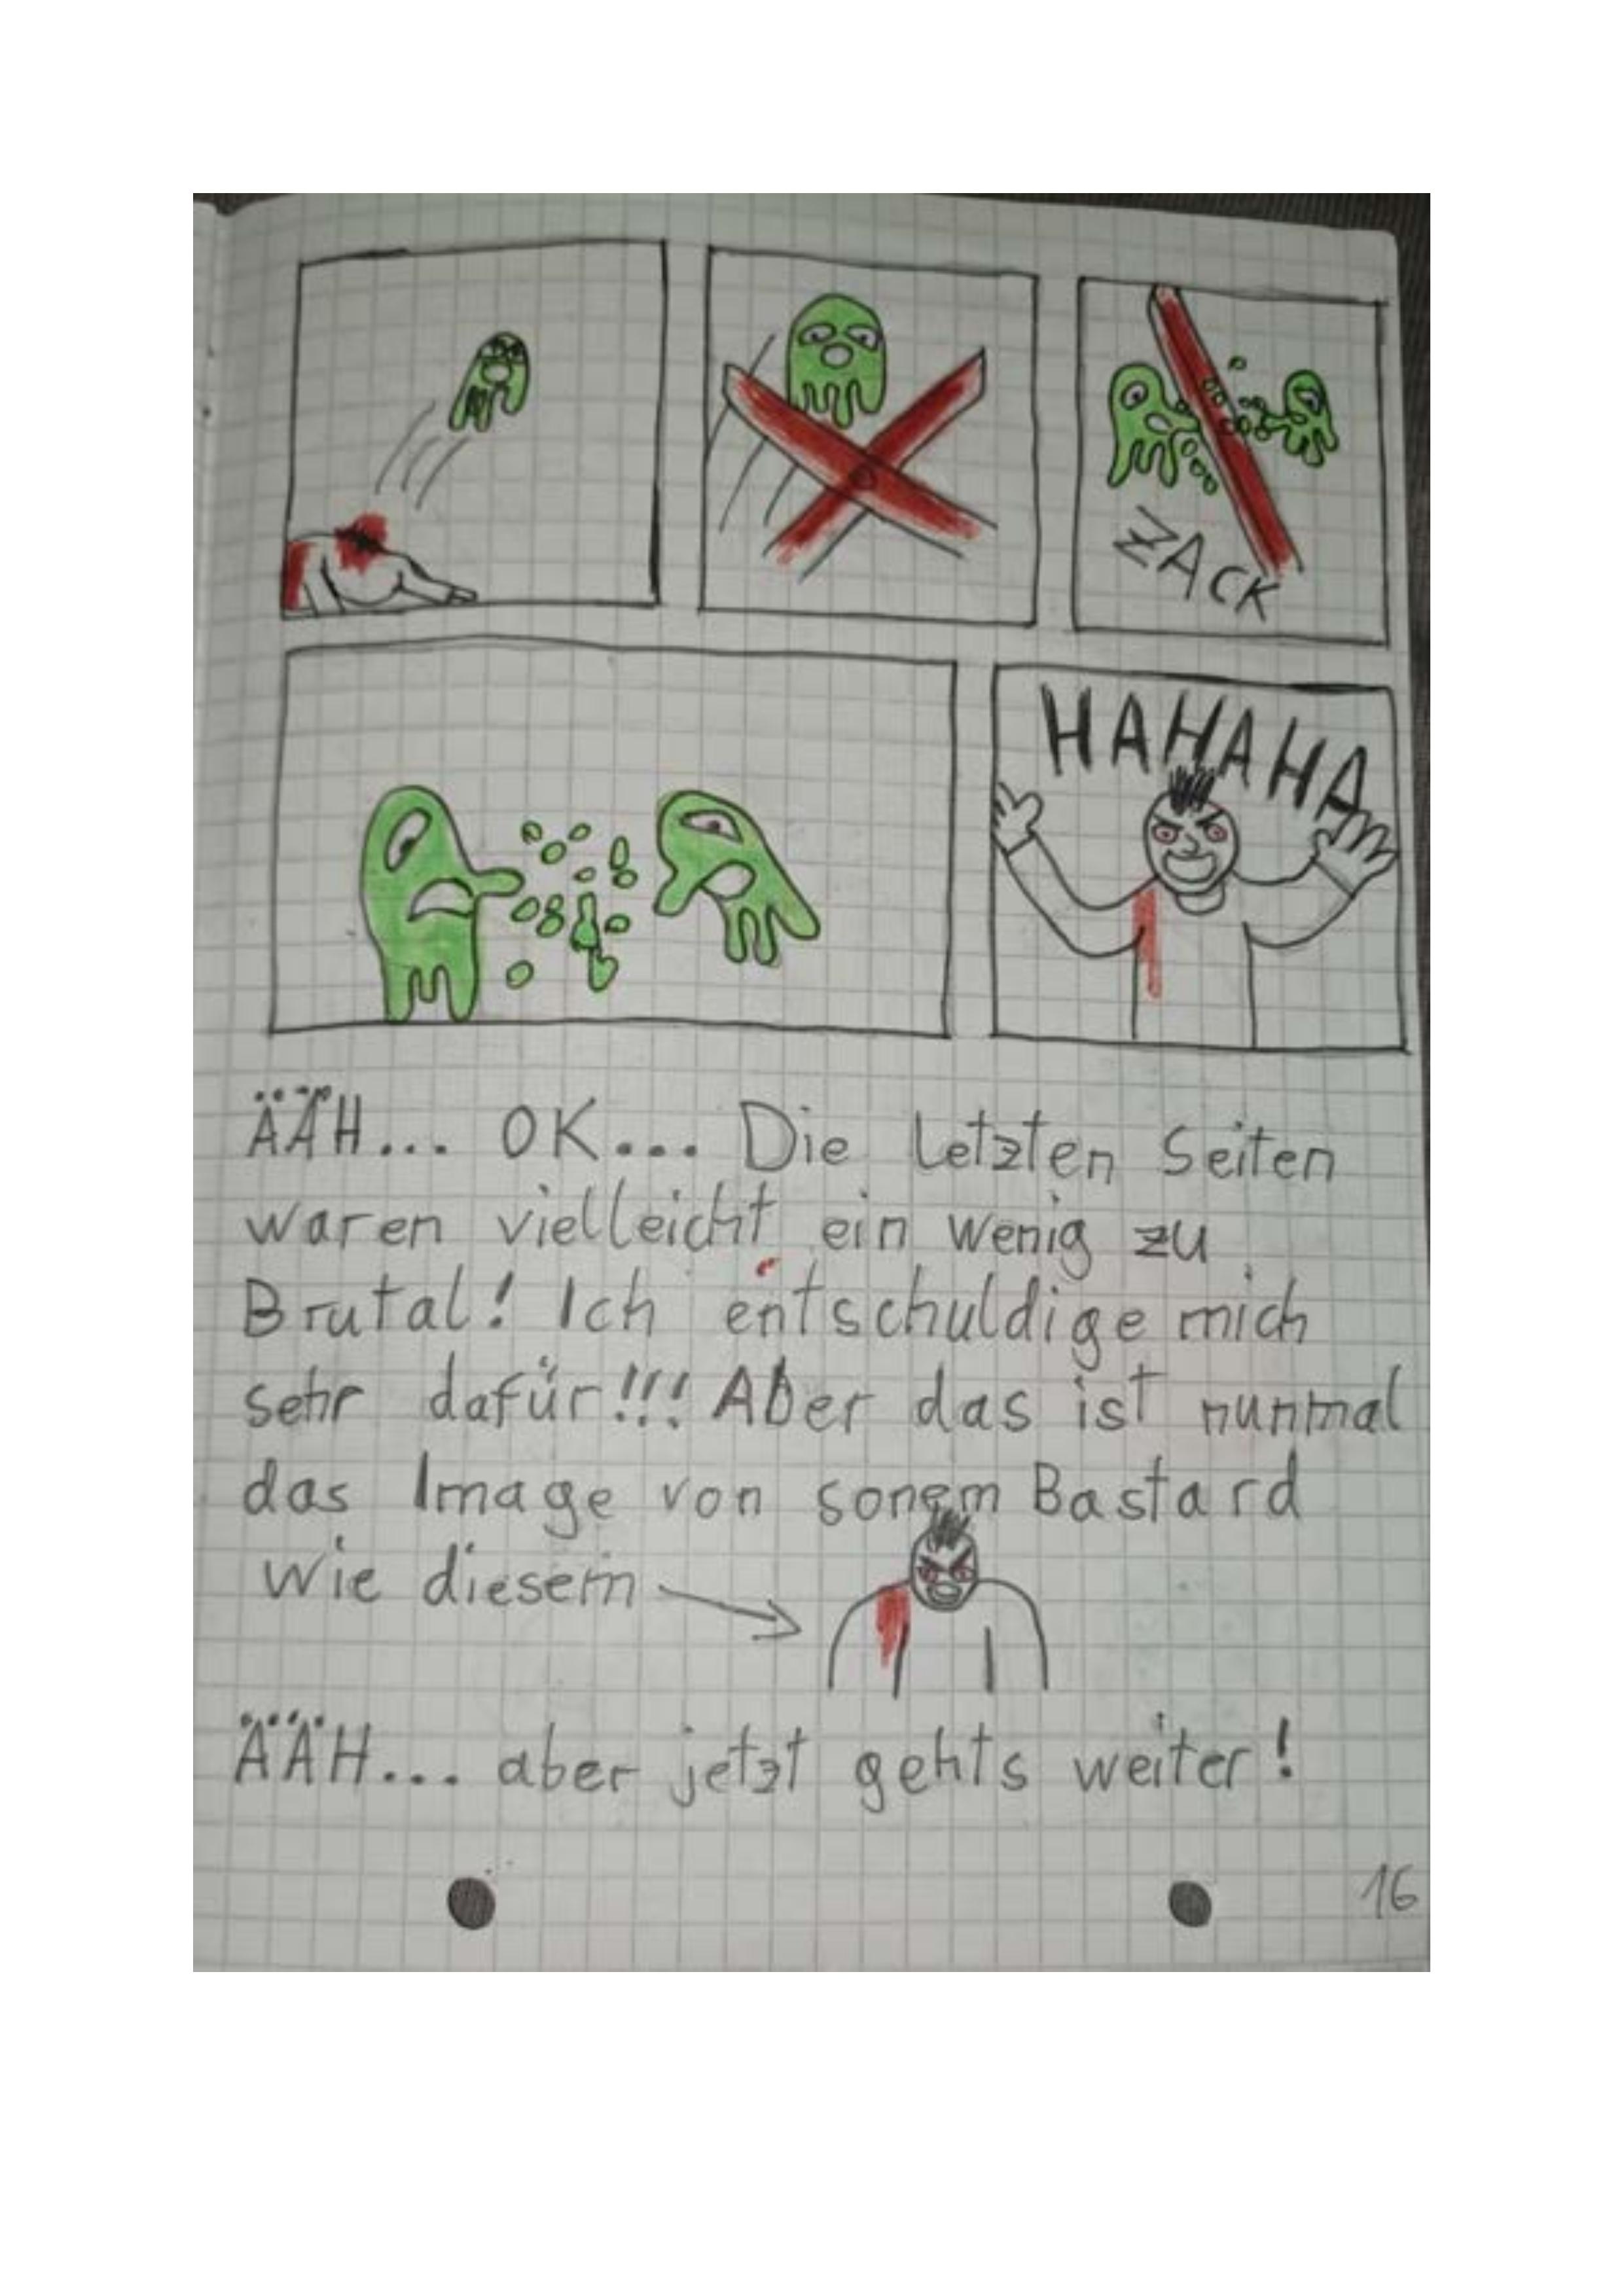 ZACK
HAHAHA
ÄÄH... OK... Die letzten Seiten
waren vielleicht ein wenig zu
Brutal! Ich entschuldige mich
sehr dafür!!! Aber das ist nunmal
das Image von sonem Bastard
wie diesem
ÄÄH... aber jetzt gehts weiter!
16